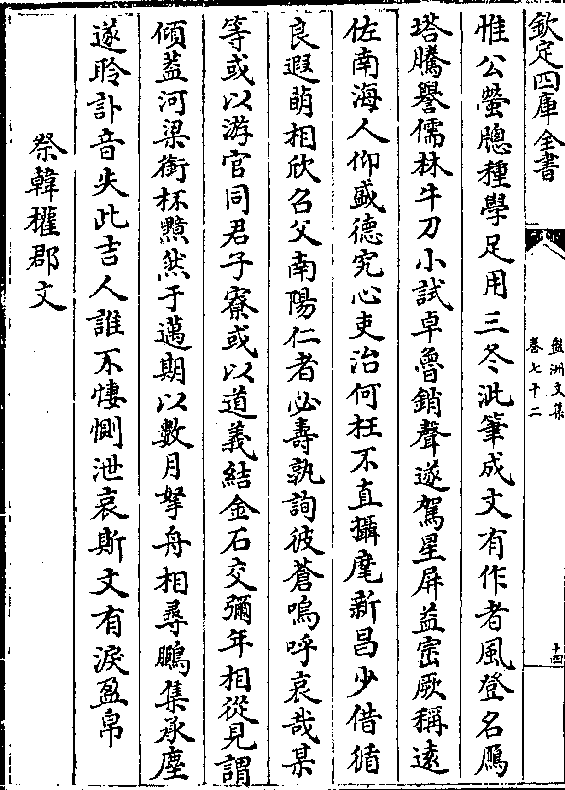 欽定四庫全書
盤洲文集
卷七十二
十四
惟公螢牕種學足用三冬泚筆成文有作者風登名鴈
塔騰譽儒林牛刀小試卓魯銷聲遂駕星屏益宻厥稱逺
佐南海人仰盛德究心吏治何枉不直攝麾新昌少借循
良遐萌相欣召父南陽仁者必壽孰詢彼蒼嗚呼哀哉某
等或以游官同君子寮或以道義結金石交彌年相從見謂
傾蓋河梁銜杯黯然于邁期以數月拏舟相尋鵩集承塵
遂聆訃音失此吉人誰不悽惻泄哀斯文有淚盈帛
祭韓權郡文